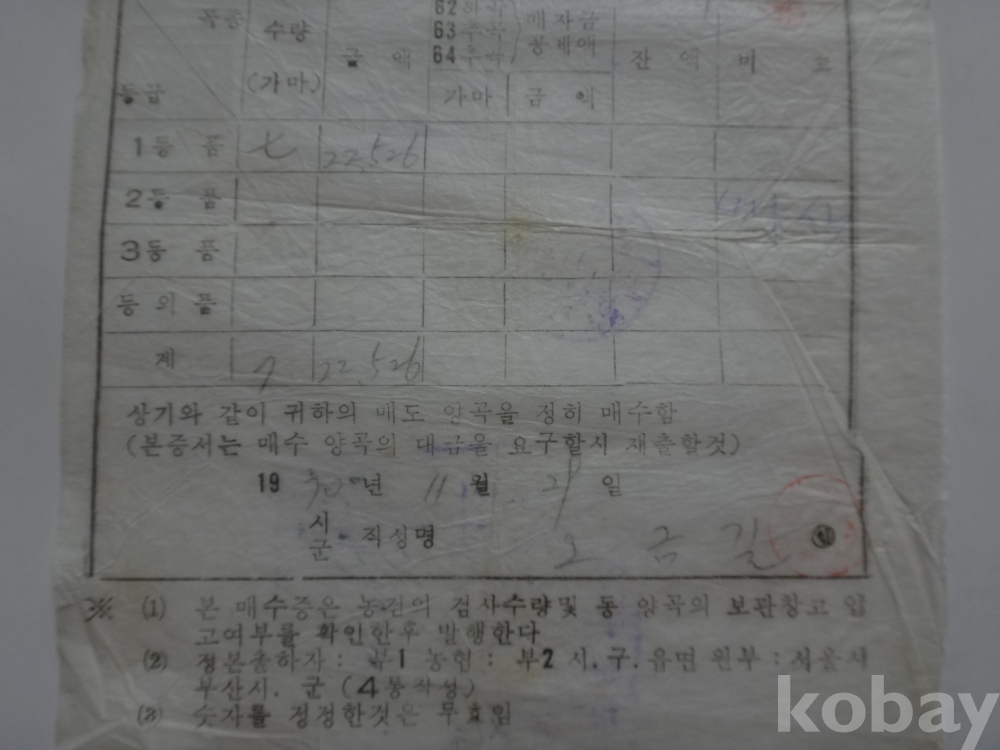 곡종 수량 62하곡 매자금
63추곡 공제액
64추곡
금액 잔액 비고
(가마) 가마 금액
등급
1등품 七 22,526
2등품
3등품
등외품
계 7 22,526
상기와 같이 귀하의 매도 양곡을 정히 매수함
(본증서는 매수 양곡의 대금을 요구할시 재출할것)
19 년 11월 21일
시
군 · 직성명 오금길 ㊞
※ (1) 본 매수증은 농검의 검사수량및 동 양곡의 보관창고 입
고여부를 확인한후 발행한다
(2) 정본출하자 : 부1 농협 : 부2 시.구.읍면 원부 : 서울시
부산시. 군 (4통작성)
(3) 숫자를 정정한것은 무효임
kobay